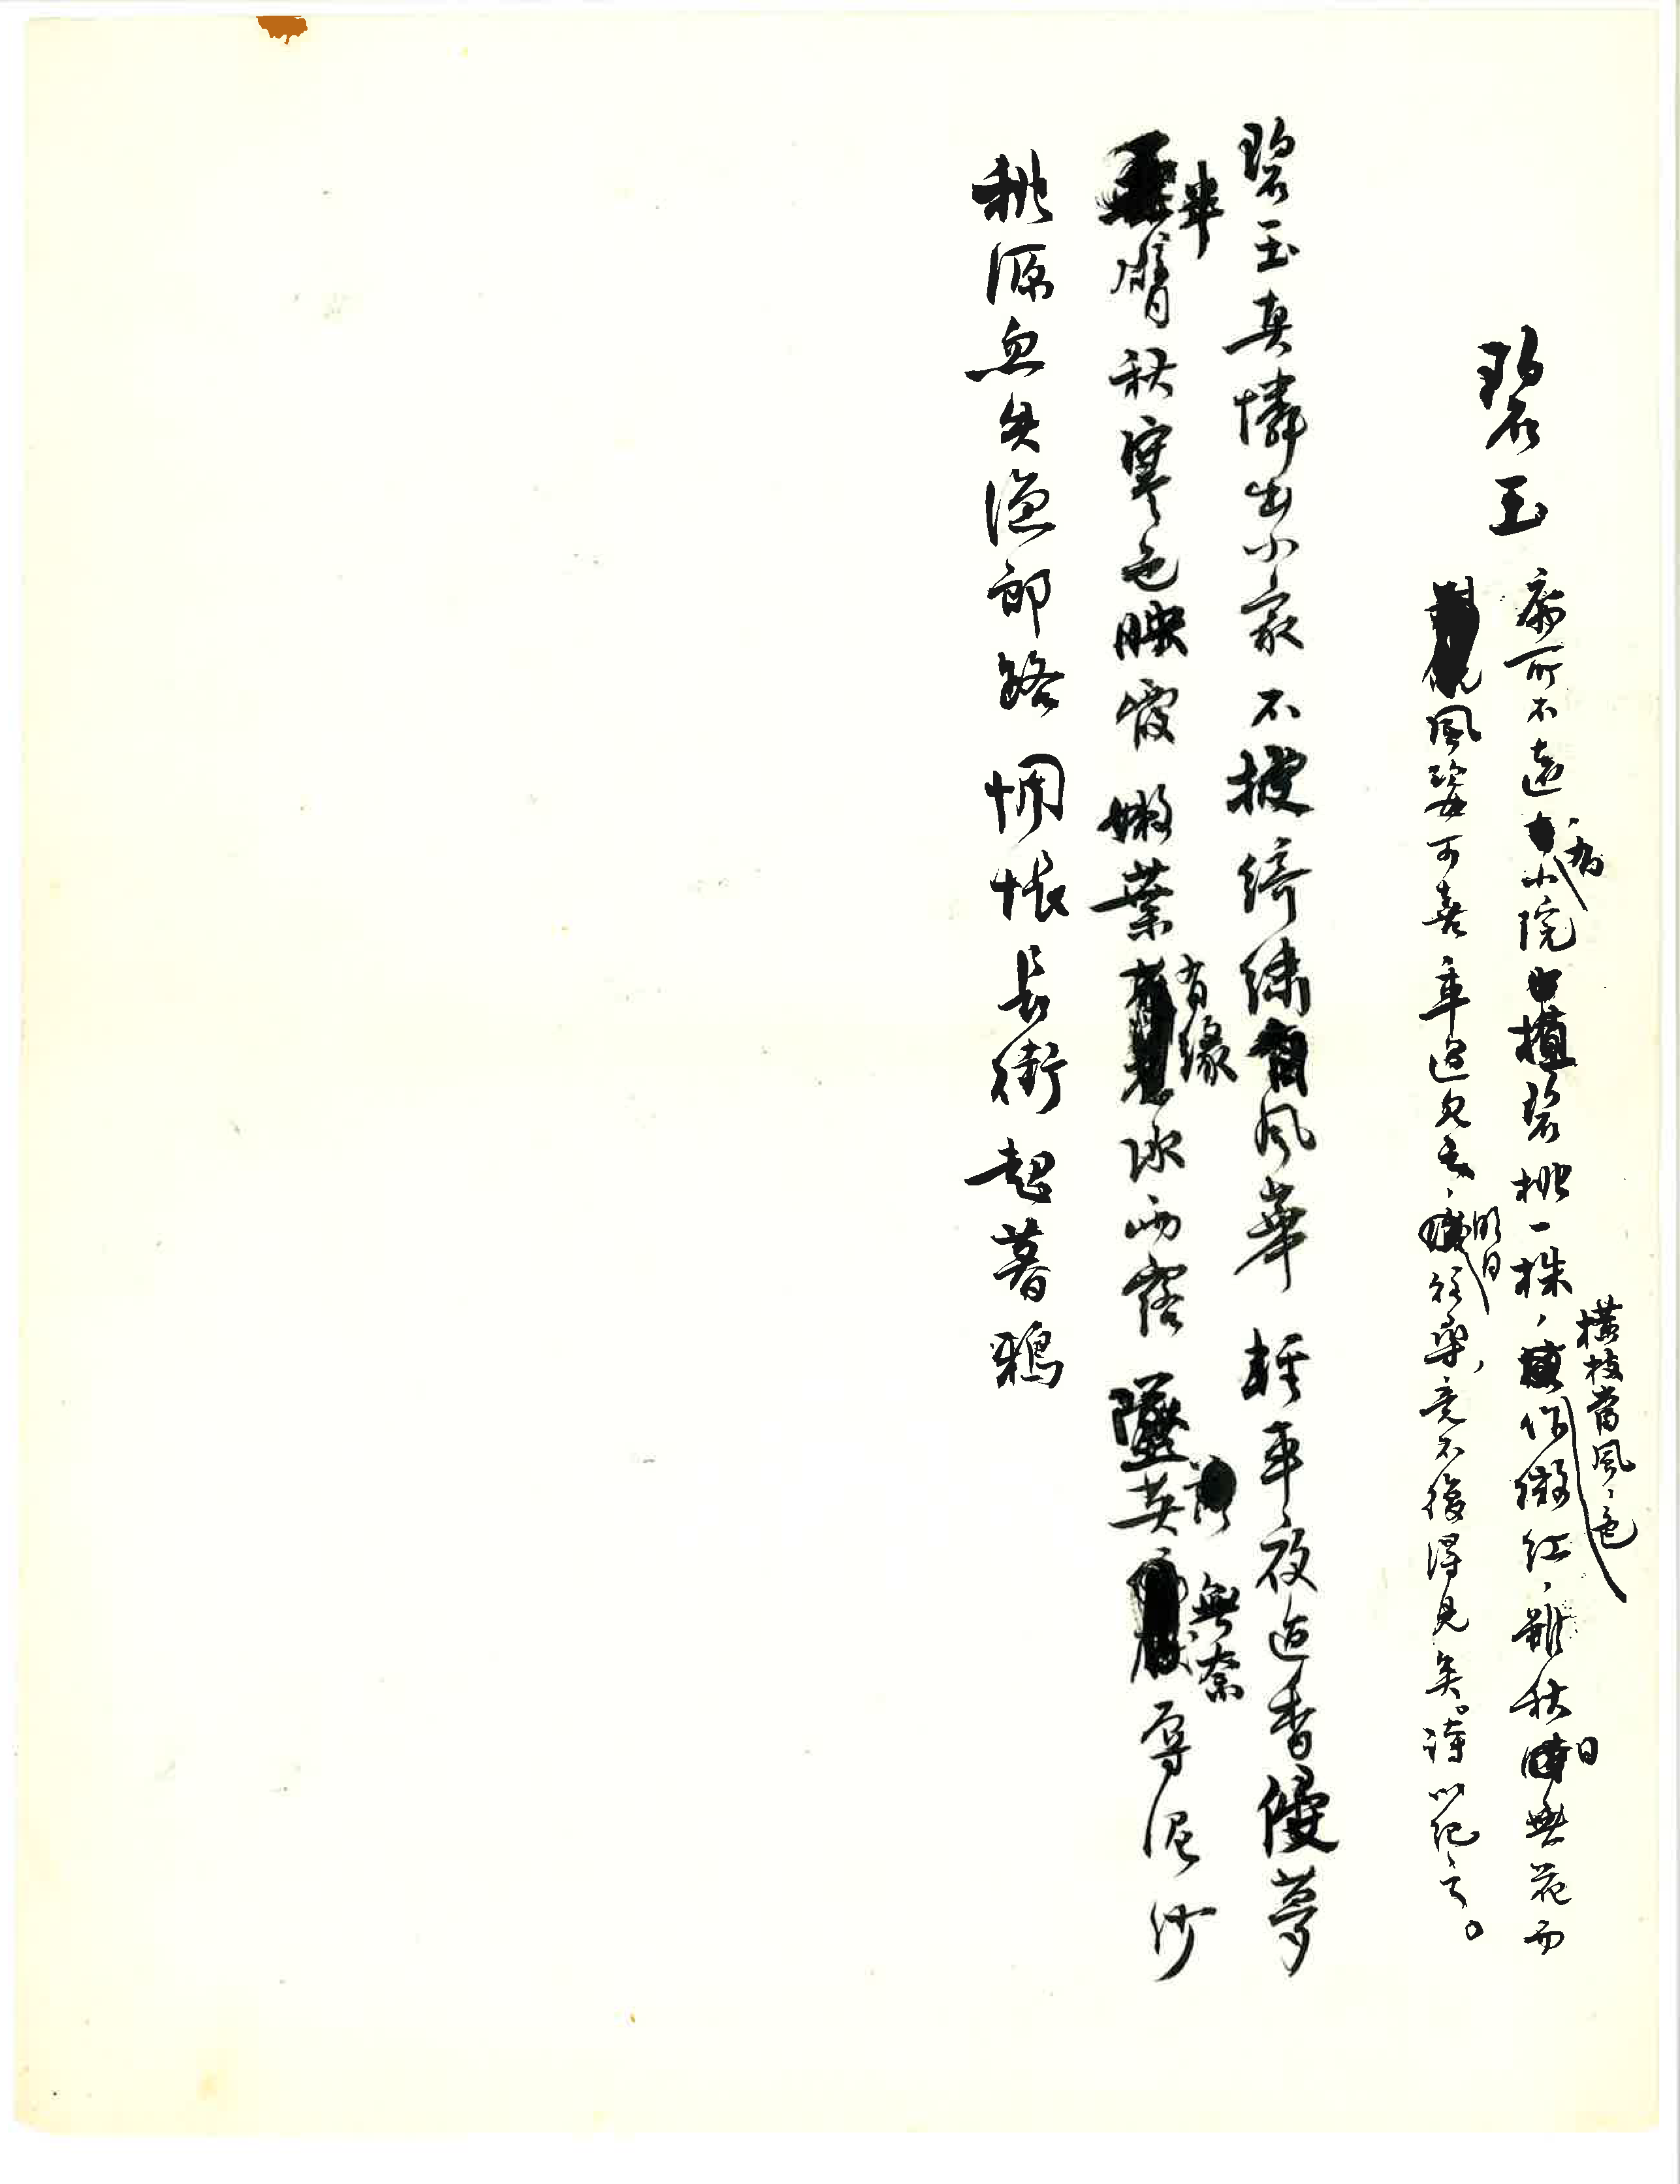 碧玉
寓所不遠有小院植碧桃一株，橫枝當風，色作微紅，雖秋日無花而
風姿可喜，車過見之，明日往尋，竟不復得見矣。詩以紀之。
碧玉真憐出小家 不披綺繡自風華 輕車夜過香侵夢
單臂秋寒色映霞 嫩葉有緣冰雨露 墜英無奈辱泥沙
桃源忽失漁郎路 惆悵長街起暮鴉